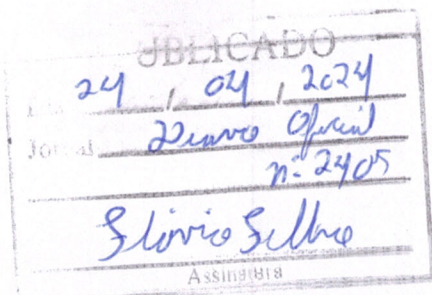 UBLICADO
24 / 04 / 2024
Jornal Diario Oficial
nº 2405
Assinatura